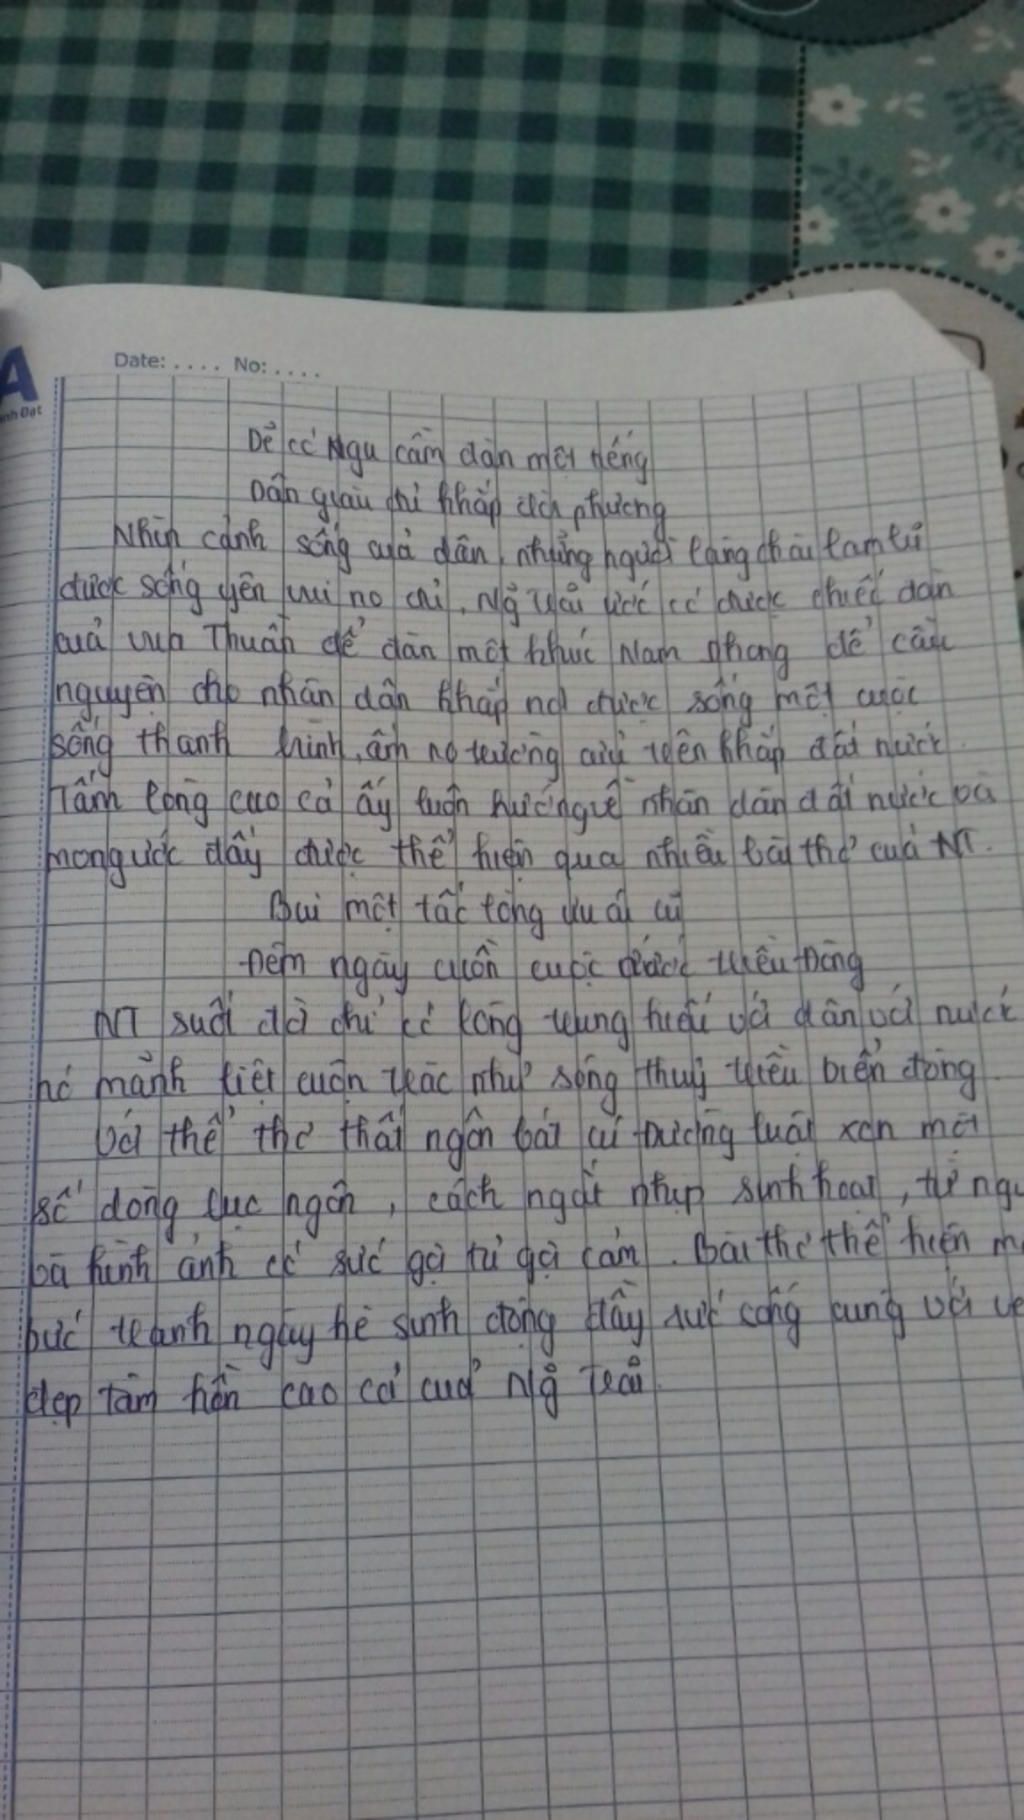 A
nh Đạt
Date: .... No: ....
Dẻ có Ngu cầm đàn một tiếng
Dân giàu đủ khắp đòi phương
Nhìn cảnh sống của dân, những người làng chài lam lũ
được sống yên vui no đủ, Ng Trãi ước có được chiếc đàn
của vua Thuấn để đàn một khúc Nam phong để cầu
nguyện cho nhân dân khắp nơi được sống một cuộc
sống thanh bình, ấm no trường cửu trên khắp đất nước.
Tấm lòng cao cả ấy luôn hướng về nhân dân đất nước và
mong ước đấy được thể hiện qua nhiều bài thơ của NT.
Bui một tấc lòng ưu ái cũ
Đêm ngày cuồn cuộn nước triều Đông
NT suốt đời chỉ có lòng trung hiếu với dân với nước
nó mảnh liệt cuộn trào như sóng thuỷ triều biển đông
Với thể thơ thất ngôn bát cú đường luật xen một
số dòng lục ngôn, cách ngắt nhịp sinh hoạt, từ ngữ
và hình ảnh có sức gợi tả gợi cảm. Bài thơ thể hiện m
bức tranh ngày hè sinh động đầy sức sống cùng với vẻ
đẹp tâm hồn cao cả của Ng Trãi.